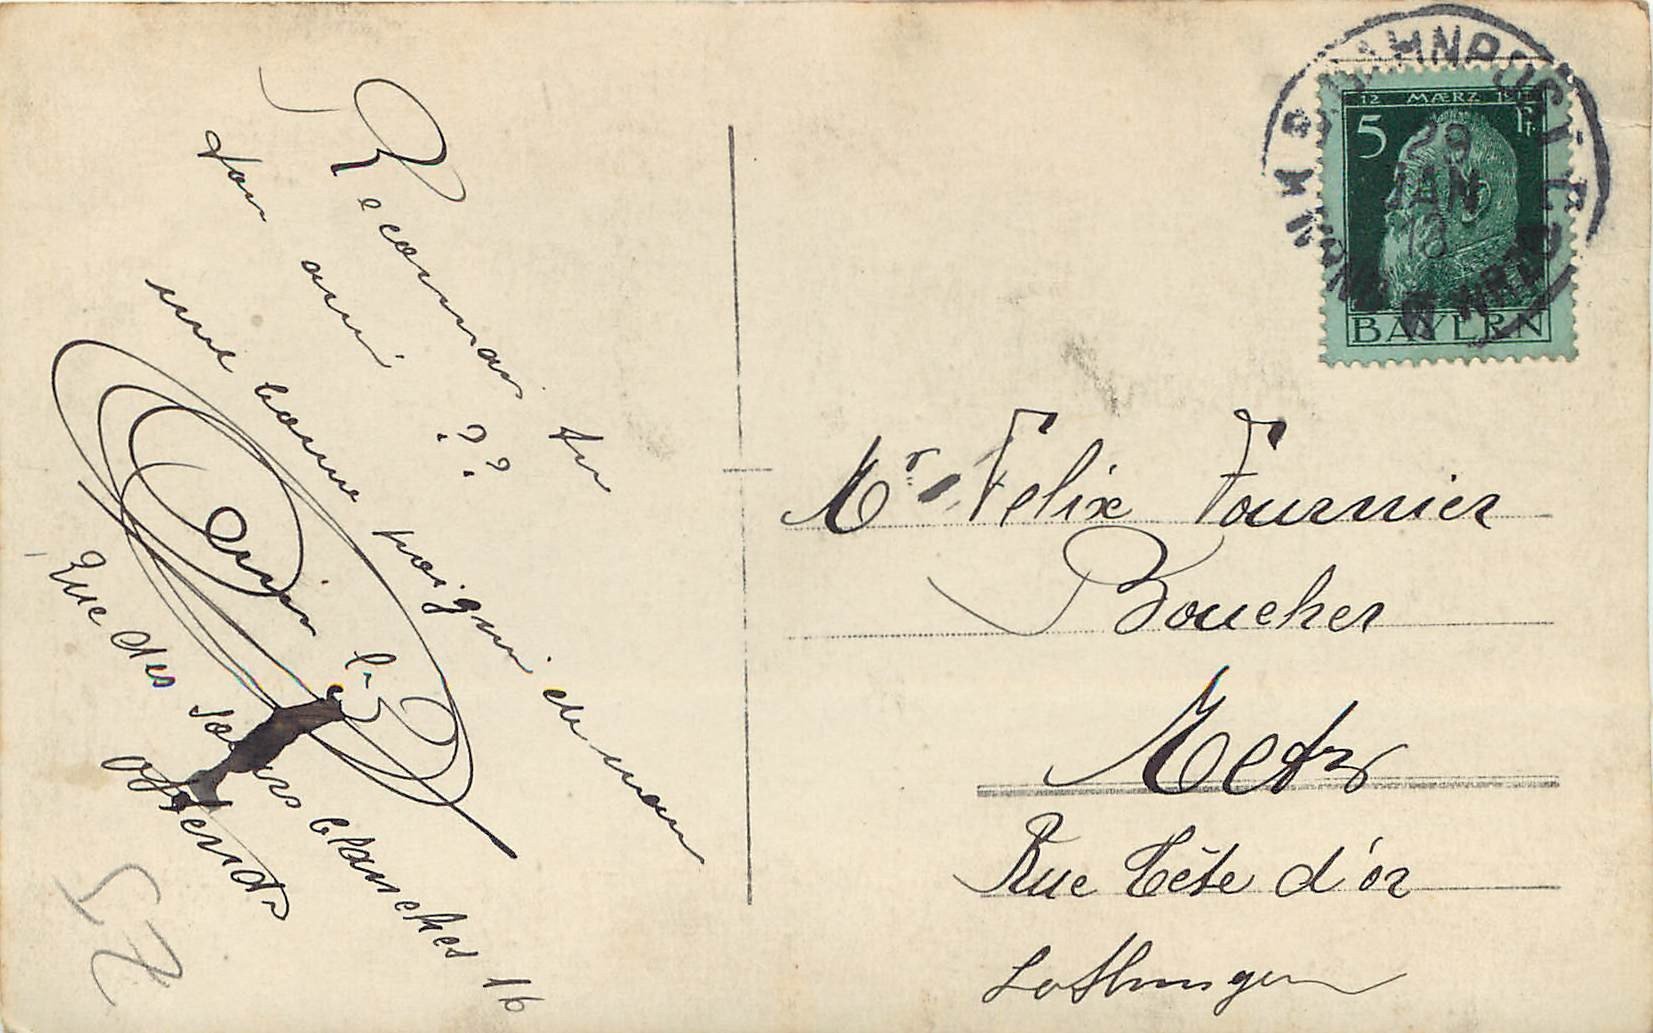 Reconnais tu
ton ami ??
une bonne poignée de main
Rue des soeurs blanches 16
Ostende
57
BAHNPOST
12 MÆRZ 1911
5 Pf
29
JAN
BAYERN
Mr Felix Fournier
Boucher
Metz
Rue Tête d'or
Lothringen